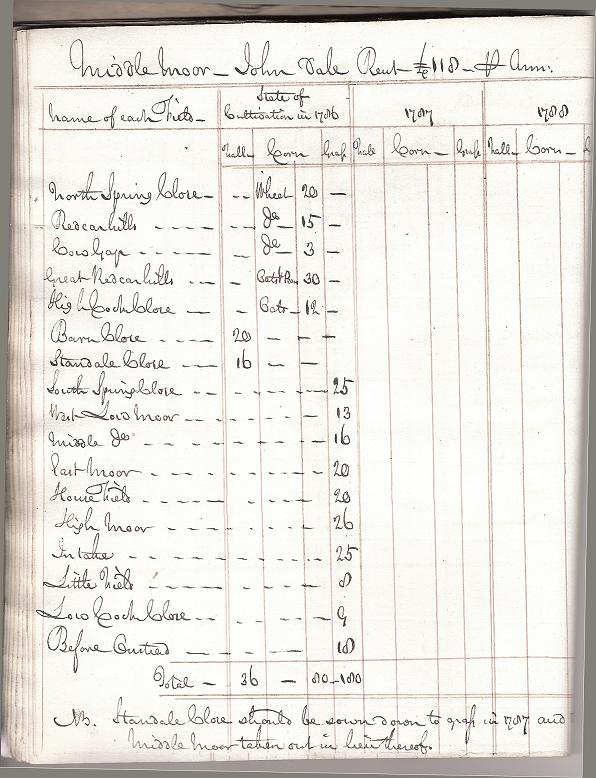 Middle Moor – John Dale Rent £118 – ⅌ Ann:
Name of each Field –
State of
Cultivation in 1786
1787
1788
Fall. Corn Graſs Fall. Corn – Graſs Fall. Corn –
North Spring Close – - - Wheat 20 –
Redcarhills - - - - - - Do 15 –
Cow Gap - - - - - Do 3 –
Great Redcarhills - - - - 30 –
High Cock Close – – Oats – 12 –
Barn Close - - - - 20 – – –
Standale Close – 16 – –
South Spring Close - - - - - - - 25
West Low Moor - - - - - - - 13
Middle Do - - - - - - - 16
East Moor - - - - - - - 20
House Field - - - - - - - 20
High Moor - - - - - - - 26
Intake - - - - - - - 25
Little Field - - - - - - 8
Low Cock Close - - - - - 9
Before - - - - 18
Total – 36 – 80 – 180
NB. Standale Close should be sown down to graſs in 1787 and
Middle Moor taken out in lieu thereof.